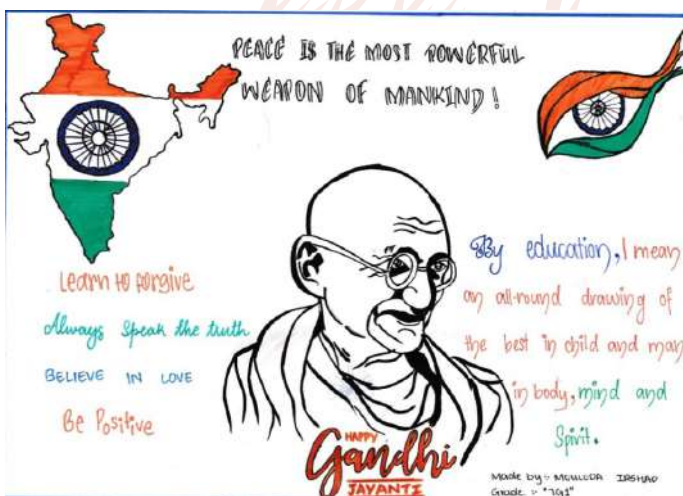 PEACE IS THE MOST POWERFUL
WEAPON OF MANKIND!
Learn to forgive
Always speak the truth
BELIEVE IN LOVE
Be Positive
By education, I mean
an all-round drawing of
the best in child and man
in body, mind and
Spirit.
HAPPY
Gandhi
JAYANTI
Made by:- IRSHAD
Grade :- "7G1"